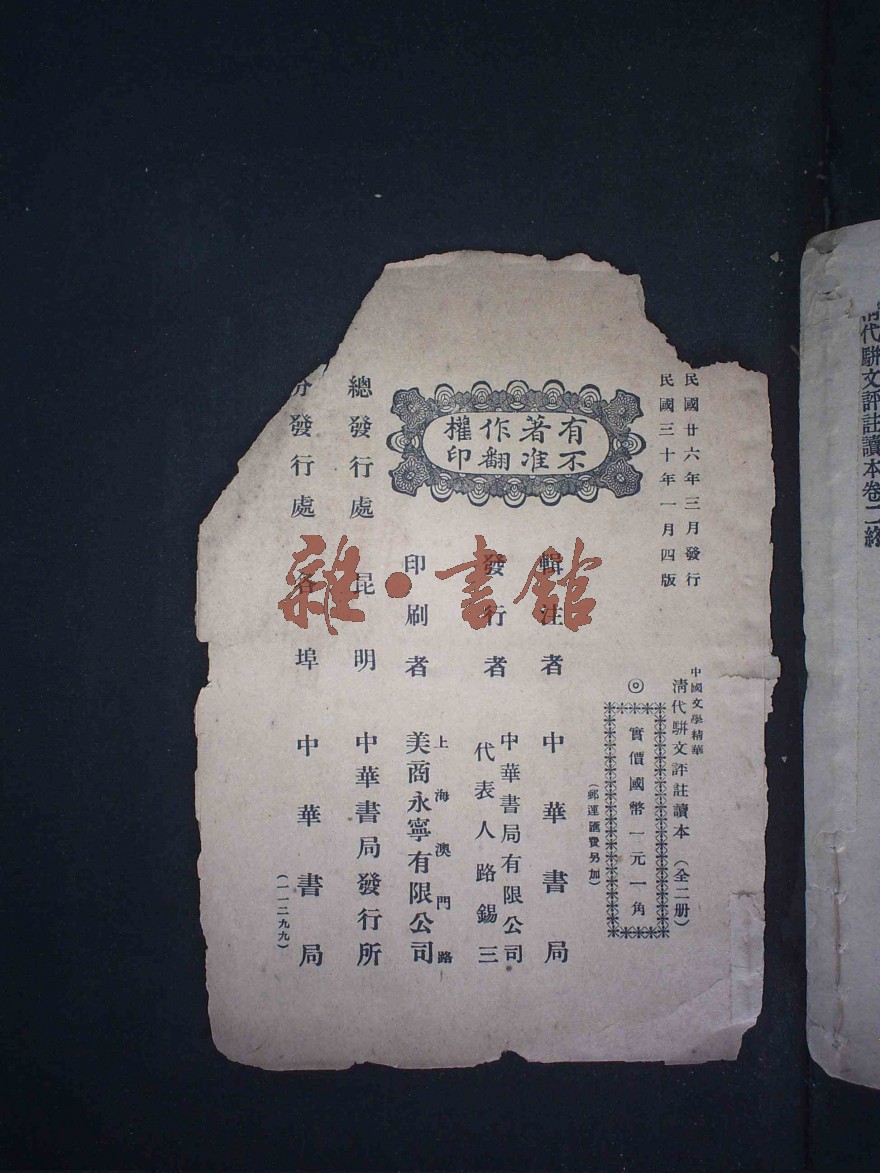 清代駢文評註讀本卷二終
民國廿六年三月發行
民國三十年一月四版
中國文學精華
清代駢文評註讀本（全二册）
◎實價國幣一元一角
（郵運匯費另加）
有著作權
不准翻印
輯注者 中華書局
發行者 中華書局有限公司
代表人路錫三
印刷者 上海澳門路
美商永寧有限公司
總發行處 昆明 中華書局發行所
分發行處 各埠 中華書局
（一一二九九）
雜·書館